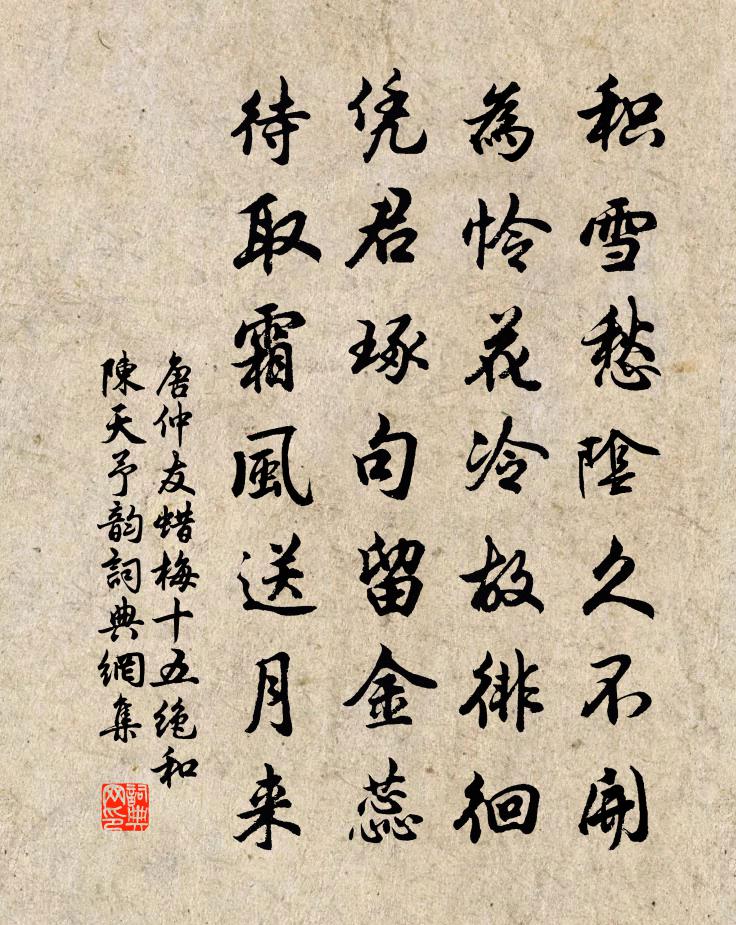 积雪愁阴久不開
為怜花冷故徘徊
凭君琢句留金蕊
待取霜風送月来
唐仲友蜡梅十五绝和
陳天予韵詞典網集
詞典
网印